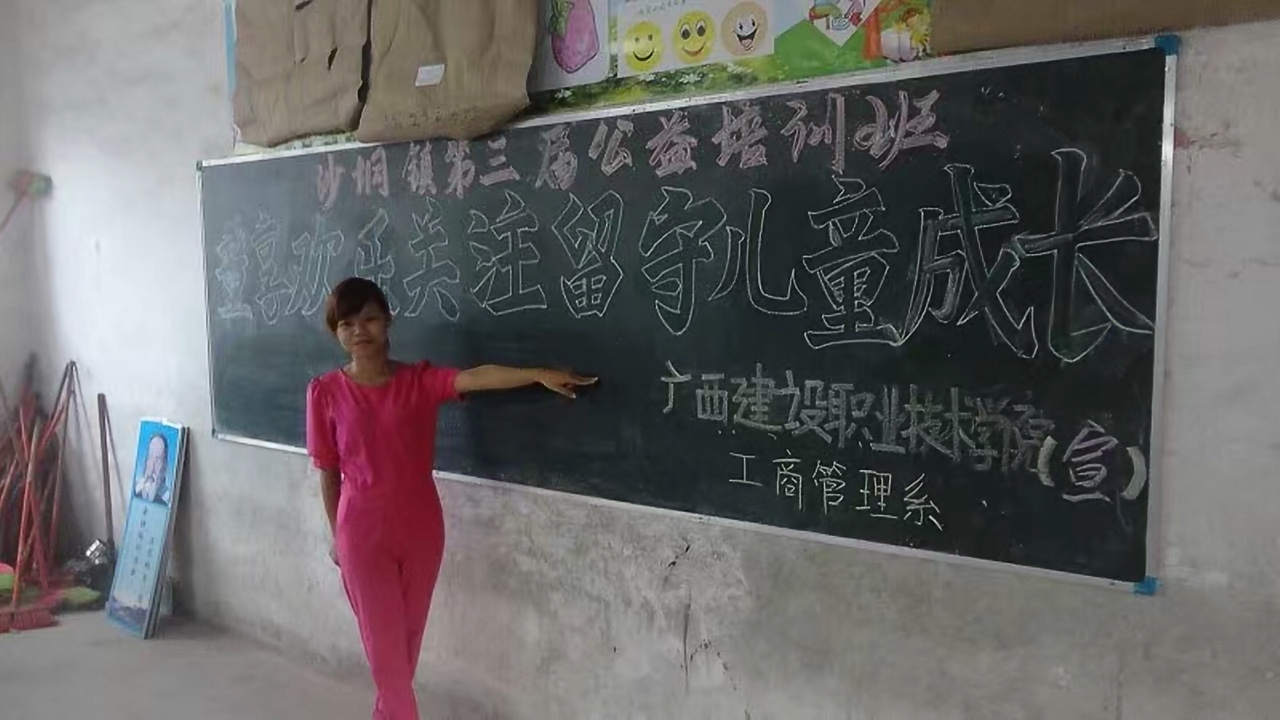 沙垌镇第三届公益培训班
童享欢乐关注留守儿童成长
广西建设职业技术学院(宣)
工商管理系